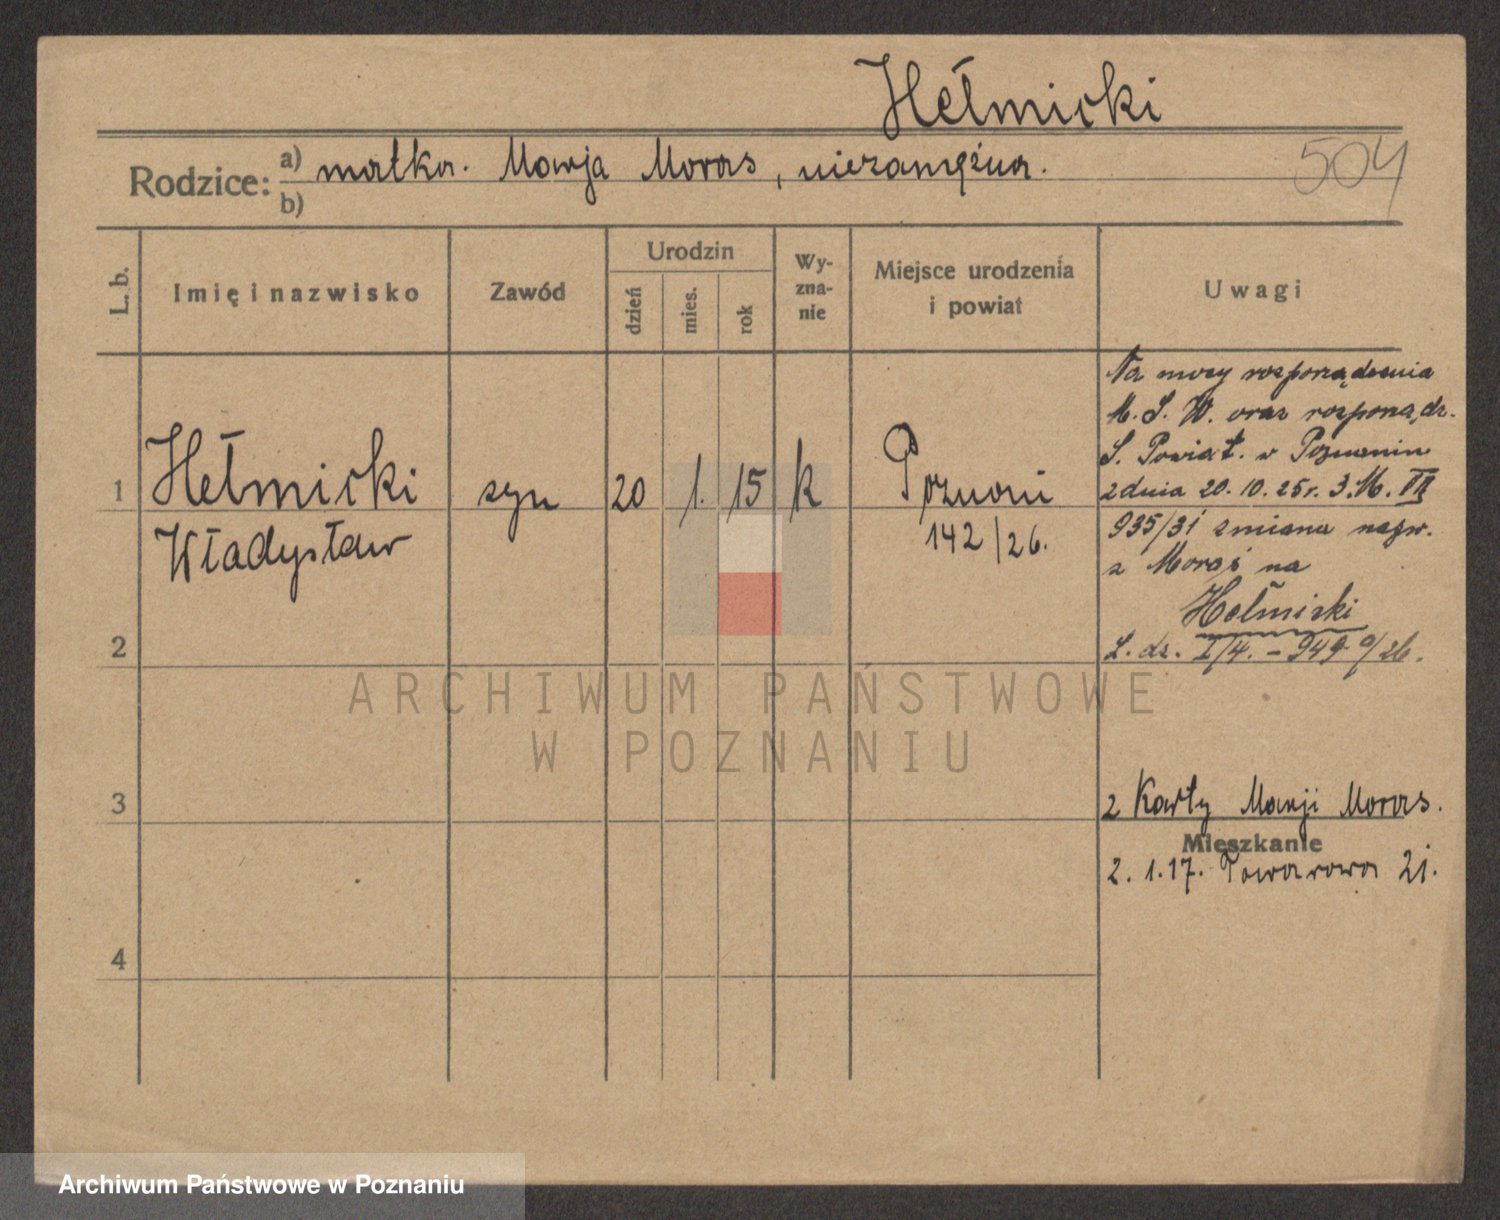 Hełmicki
504
Rodzice: a) matka. Marja Moras, niezamężna.
b)
L. b.
Imię i nazwisko
Zawód
Urodzin
dzień
mies.
rok
Wy-
zna-
nie
Miejsce urodzenia
i powiat
Uwagi
1
Hełmicki
Władysław
syn
20
1.
15
k
Poznań
142/26.
Na mocy rozporządzenia
M. S. W. oraz rozporządz.
S. Powiat. w Poznaniu
z dnia 20. 10. 25 r. 3. M. III
935/31 zmiana nazw.
z Moraś na
Hełmicki
L. dz. I/4. - 949 /26.
2
3
4
z Karty Marji Moras.
Mieszkanie
2. 1. 17. Towarowa 21.
ARCHIWUM PAŃSTWOWE
W POZNANIU
Archiwum Państwowe w Poznaniu